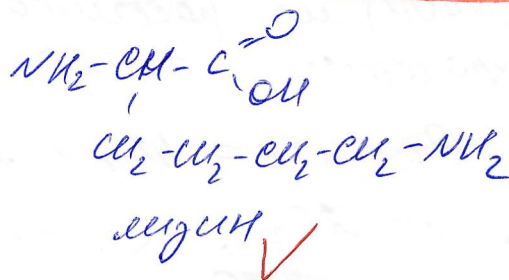 NH₂-CH-C=O
OH
CH₂-CH₂-CH₂-CH₂-NH₂
лизин